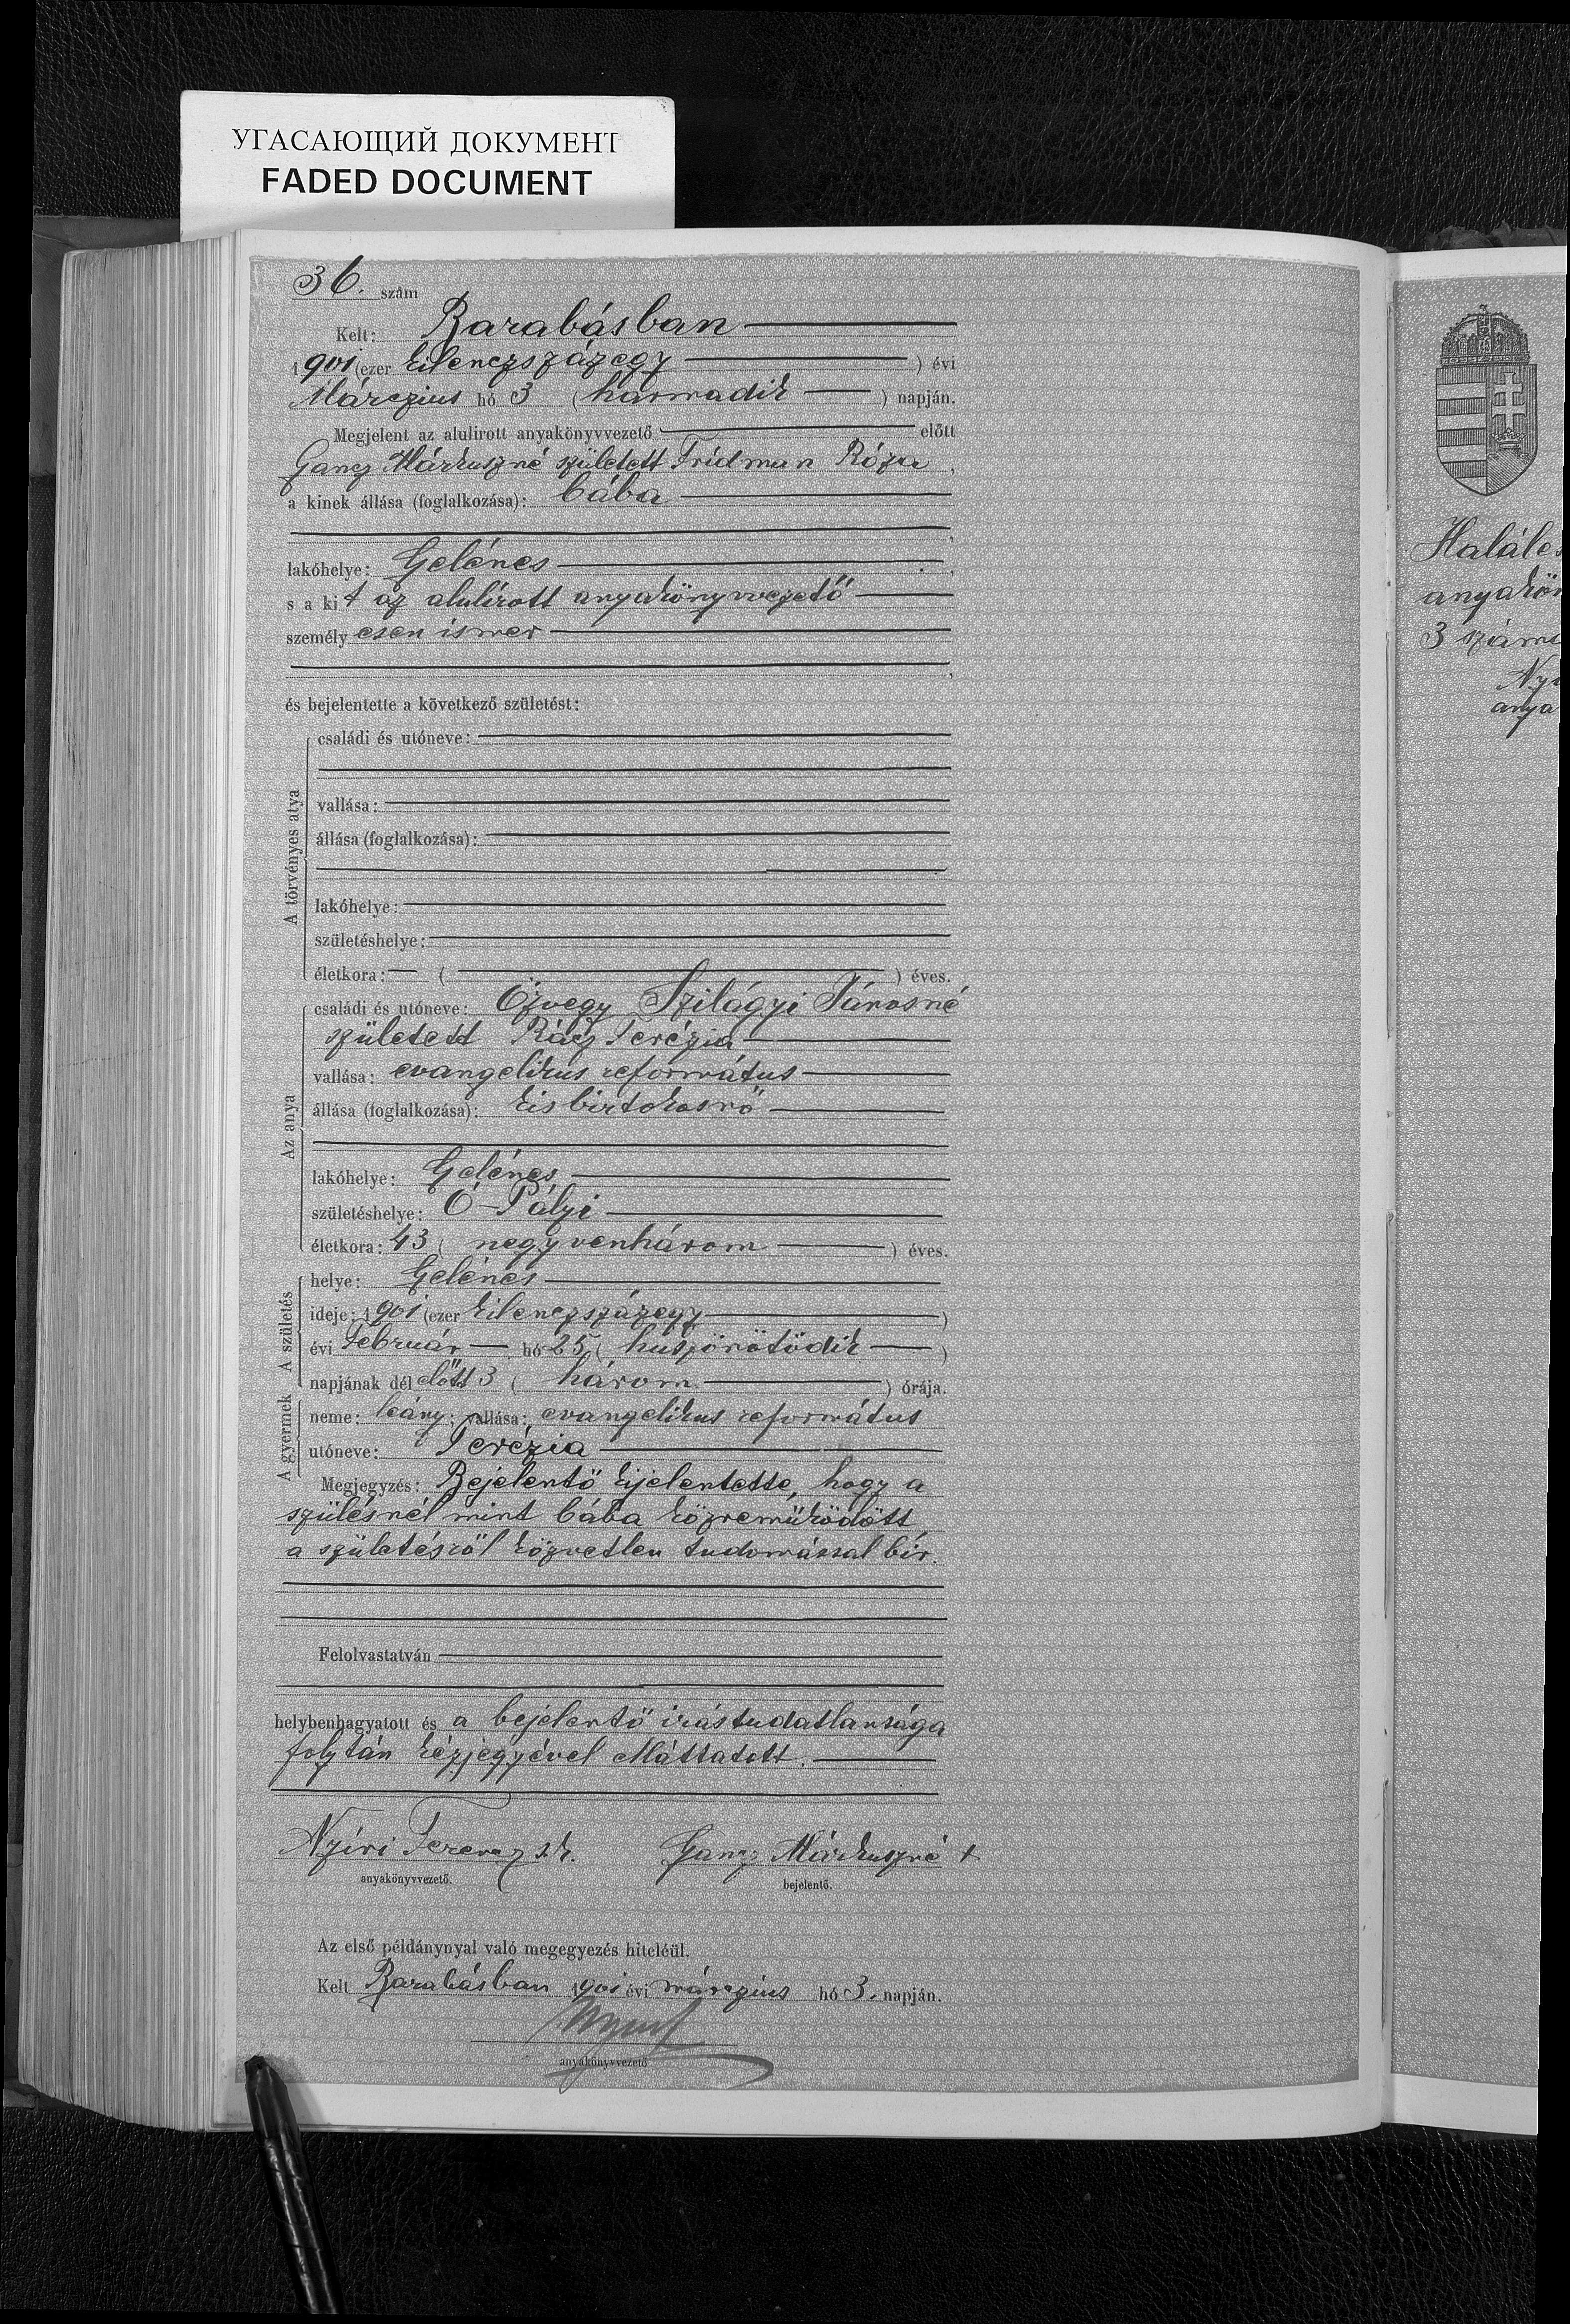 УГАСАЮЩИЙ ДОКУМЕНТ
FADED DOCUMENT
36. szám
Kelt: Barabásban
1901 (ezer kilenczszázegy) évi
Márczius hó 3 (harmadik) napján.
Megjelent az alulirott anyakönyvvezető előtt
Gancz Márkuszné született Fridman Róza,
a kinek állása (foglalkozása): bába
lakóhelye: Gelénes
s a kit az alulírott anyakönyvvezető
személyesen ismer
és bejelentette a következő születést:
A törvényes atya
családi és utóneve:
vallása:
állása (foglalkozása):
lakóhelye:
születéshelye:
életkora: ( ) éves.
Az anya
családi és utóneve: Özvegy Szilágyi Jánosné
született Rácz Terézia
vallása: evangelikus református
állása (foglalkozása): kisbirtokosnő
lakóhelye: Gelénes
születéshelye: Ó-Pályi
életkora: 43 (negyvenhárom) éves.
A születés
helye: Gelénes
ideje: 1901 (ezer kilenczszázegy)
évi Február hó 25 (huszonötödik)
napjának dél előtt 3 (három) órája.
A gyermek
neme: leány; vallása: evangelikus református
utóneve: Terézia
Megjegyzés: Bejelentő kijelentette, hogy a
szülésnél mint bába közreműködött
a születésről közvetlen tudomással bír.
Felolvastatván
helybenhagyatott és a bejelentő irástudatlansága
folytán kézjegyével elláttatott.
Nyíri Ferencz s.k. Gancz Márkuszné +
anyakönyvvezető. bejelentő.
Az első példánynyal való megegyezés hiteléül.
Kelt Barabásban 1901 évi márczius hó 3. napján.
anyakönyvvezető
3 száma
anya